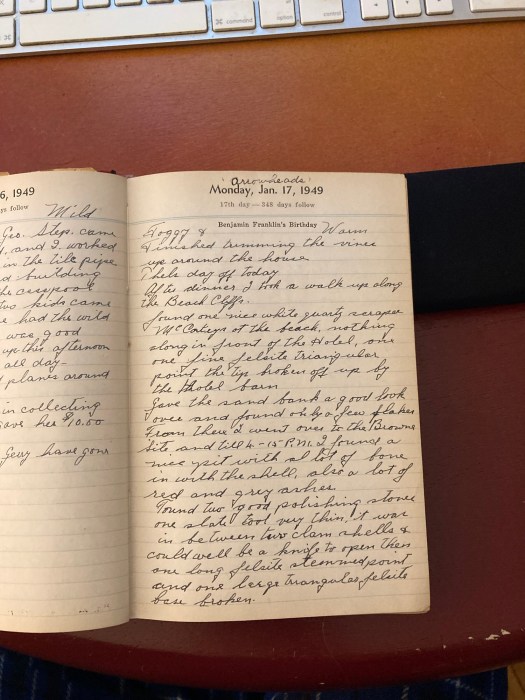 command
option
control
6, 1949
ys follow
Mild
Geo. Step. came
, and I worked
in the tile pipe
d building
the cesspool
two kids came
e had the wild
was good
up this afternoon
all day-
planes around
in collecting
gave her $10.00
Gerry have gone
"Arrowheads"
Monday, Jan. 17, 1949
17th day—348 days follow
Benjamin Franklin's Birthday
Foggy & Warm
Finished trimming the vines
up around the house
day off today
After dinner I took a walk up along
the Beach Cliffs.
found one nice white quartz scraper
at the beach, nothing
along in front of the Hotel, one
one fine felsite triangular
point the tip broken off up by
the Hotel barn
Gave the sand bank a good look
over and found only a few flakes
From there I went over to the Browne
site and till 4-15 P.M. I found a
nice pit with a lot of bone
in with the shell, also a lot of
red and grey ashes.
Found two good polishing stones
one slate tool very thin, it was
in between two clam shells &
could well be a knife to open them
one long felsite stemmed point
and one large triangular felsite
base broken.